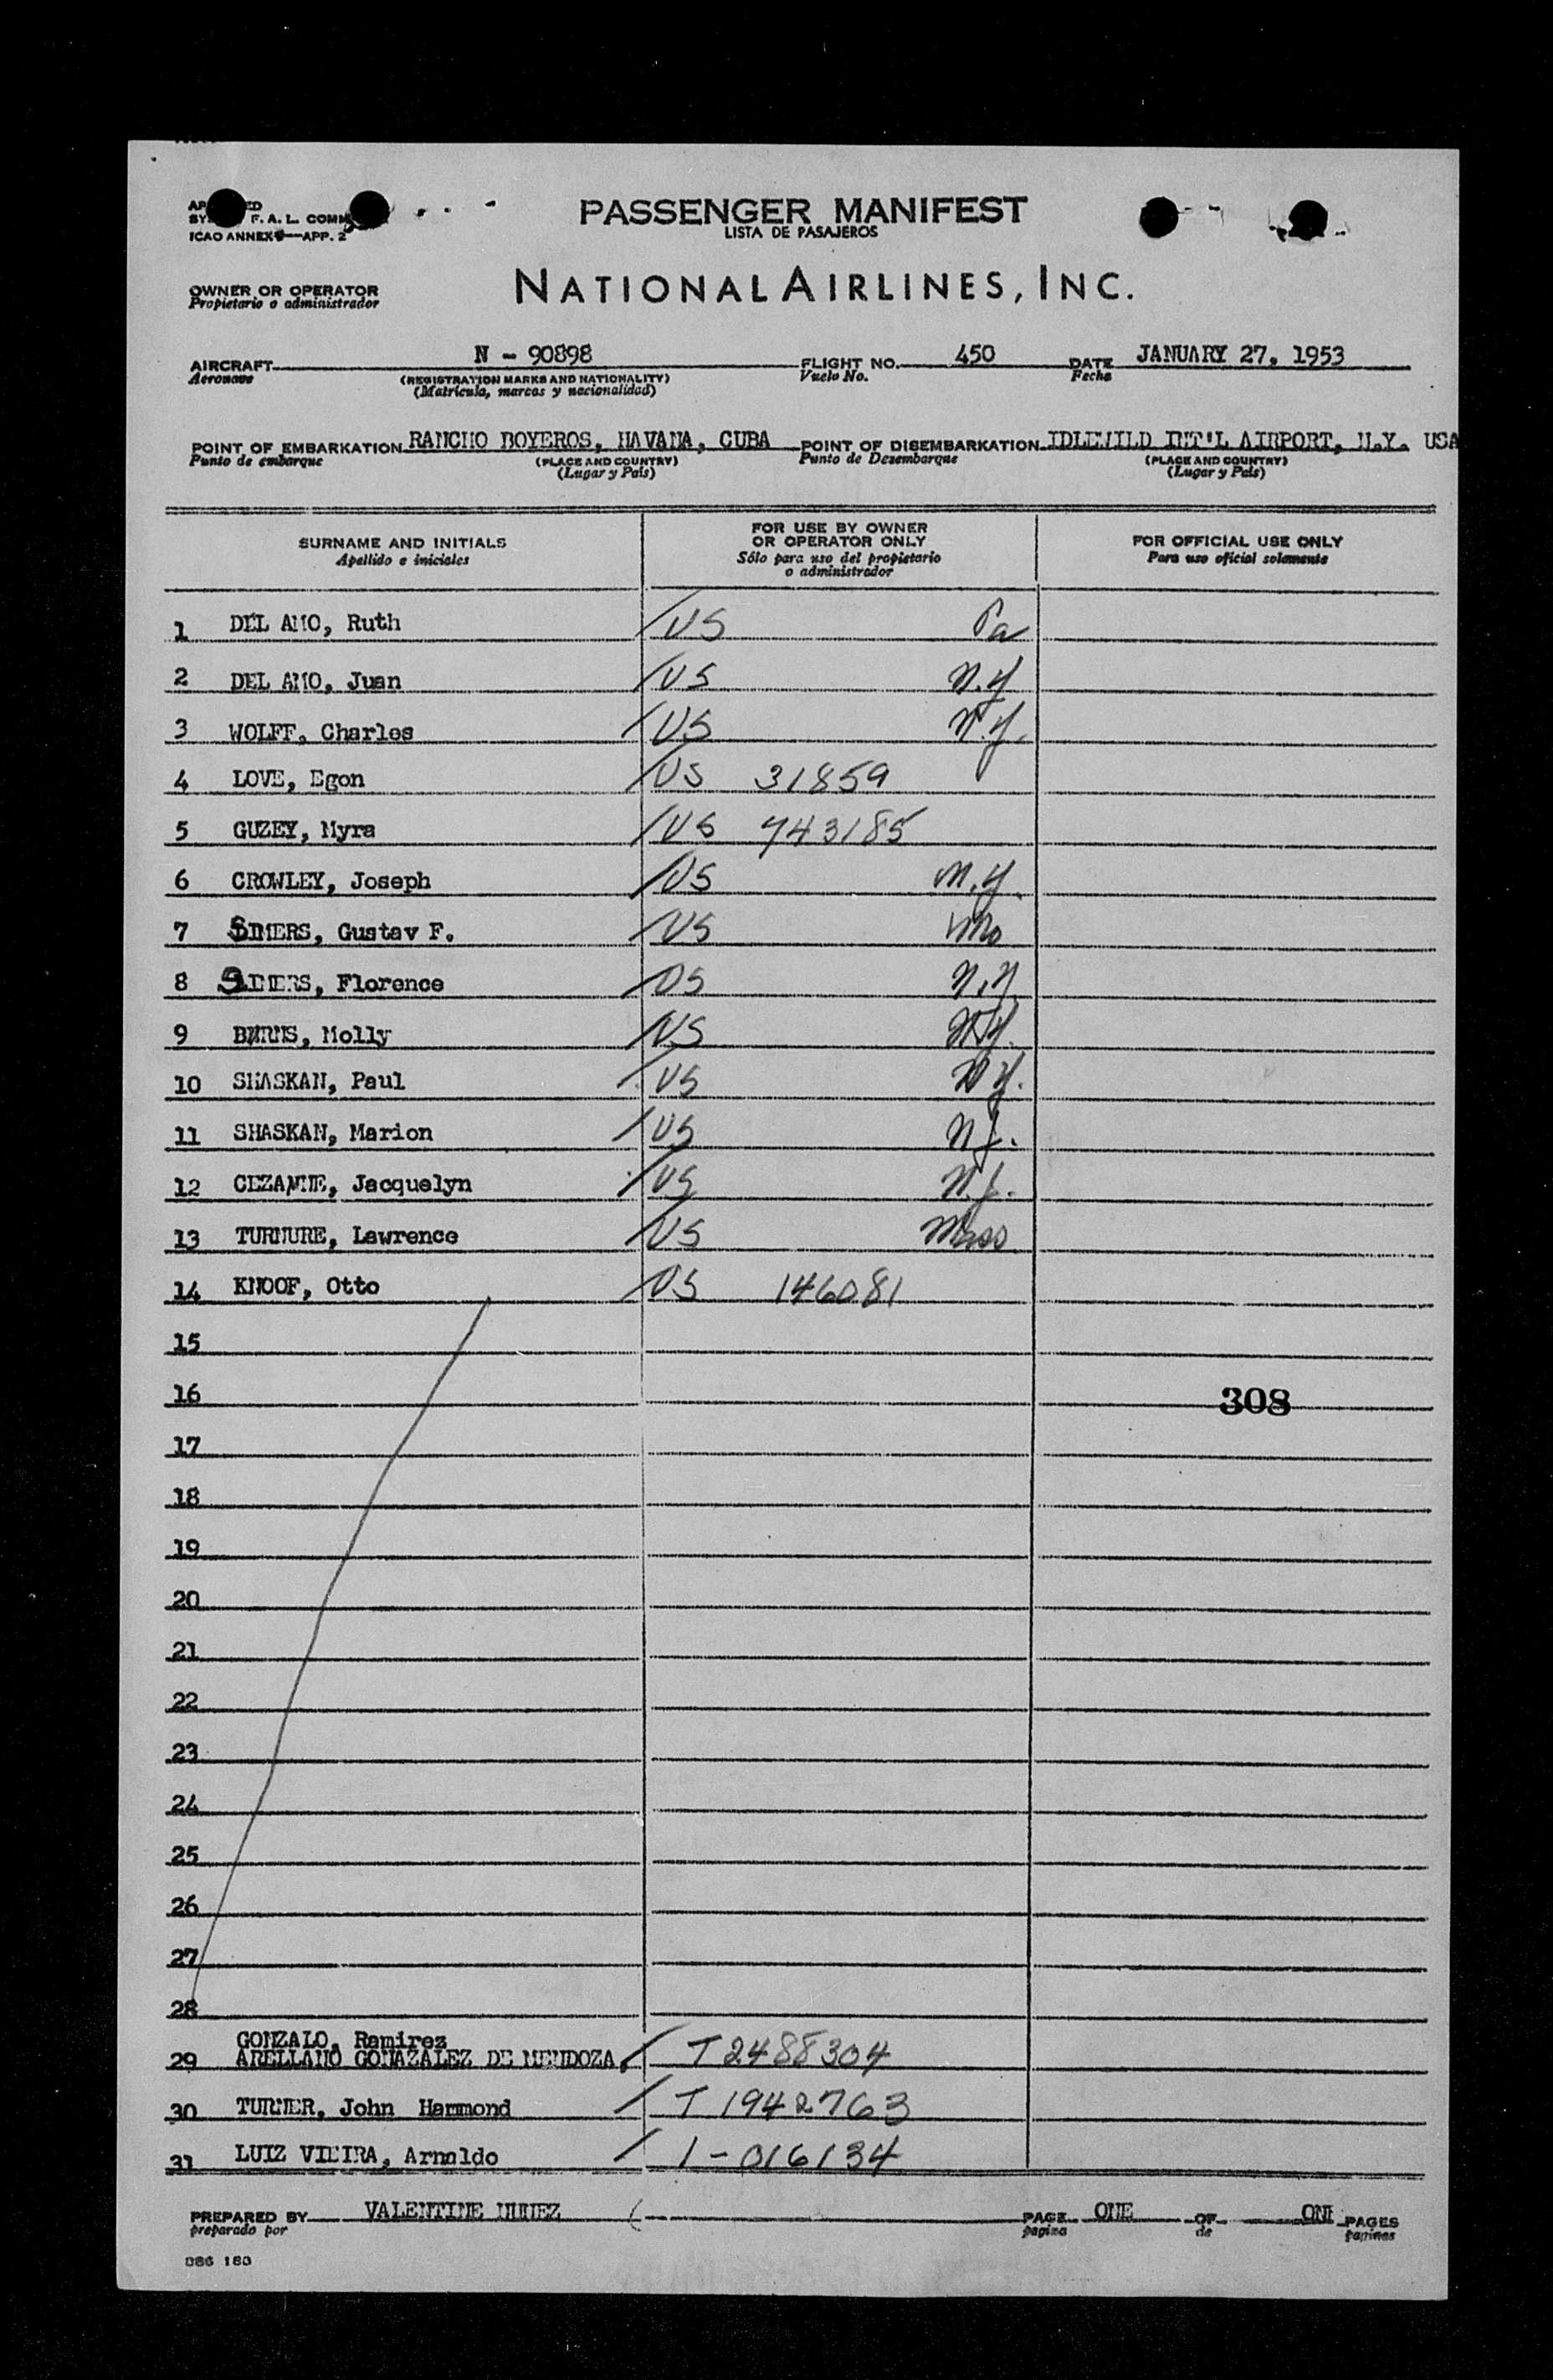 PASSENGER MANIFEST
LISTA DE PASAJEROS
F. A. L. COMM
ICAO ANNEX 9—APP. 2
OWNER OR OPERATOR
Propietario o administrador
NATIONAL AIRLINES, INC.
AIRCRAFT N - 90898 FLIGHT NO. 450 DATE JANUARY 27, 1953
Aeronave (REGISTRATION MARKS AND NATIONALITY) Vuelo No. Fecha
(Matricula, marcas y nacionalidad)
POINT OF EMBARKATION RANCHO BOYEROS, HAVANA, CUBA POINT OF DISEMBARKATION IDLEWILD INT'L AIRPORT, N.Y. USA
Punto de embarque (PLACE AND COUNTRY) Punto de Desembarque (PLACE AND COUNTRY)
(Lugar y País) (Lugar y País)
SURNAME AND INITIALS
Apellido e iniciales
FOR USE BY OWNER
OR OPERATOR ONLY
Sólo para uso del propietario
o administrador
FOR OFFICIAL USE ONLY
Para uso oficial solamente
1 DEL AMO, Ruth US Pa
2 DEL AMO, Juan US N.Y
3 WOLFF, Charles US N.Y.
4 LOVE, Egon US 31859
5 GUZEY, Myra US 743185
6 CROWLEY, Joseph US N.Y.
7 SIMERS, Gustav F. US Mo
8 SIMERS, Florence US N.Y
9 BURNS, Molly US N.Y.
10 SHASKAN, Paul US N.Y.
11 SHASKAN, Marion US N.J.
12 CEZANNE, Jacquelyn US N.J.
13 TURNURE, Lawrence US Mass
14 KNOOF, Otto US 146081
15
16 308
17
18
19
20
21
22
23
24
25
26
27
28
GONZALO, Ramirez
29 ARELLANO GONAZALEZ DE MENDOZA, T 2488304
30 TURNER, John Hammond T 1942763
31 LUIZ VIEIRA, Arnaldo 1-016134
PREPARED BY VALENTINE NUNEZ PAGE ONE OF ONE PAGES
preparado por pagina de paginas
086 180